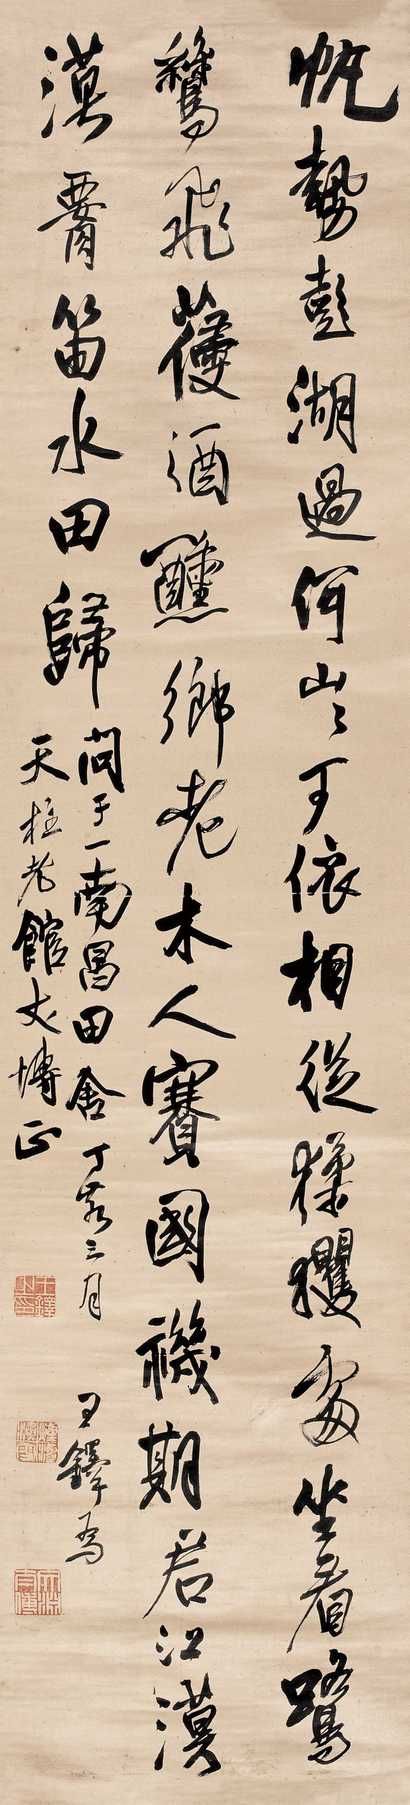 帆勢彭湖過何山〻可依相從猱玃處坐看鷺
鶿飛酒醺鄉老木人賽國禨期君江漠
漠笛水田歸
問于一南昌田舍丁亥三月王鐸為
天柱老館丈博正